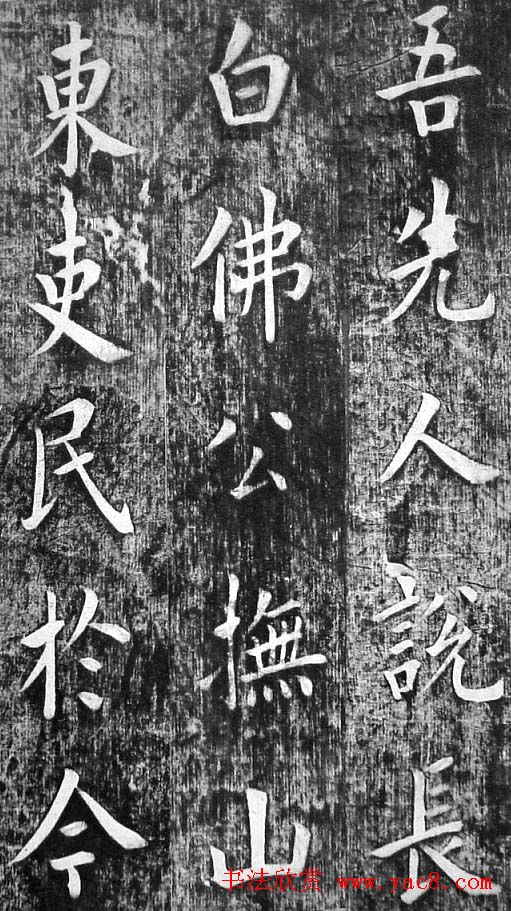 吾先人說長
白佛公撫山
東吏民於今
书法欣赏 www.yac8.com